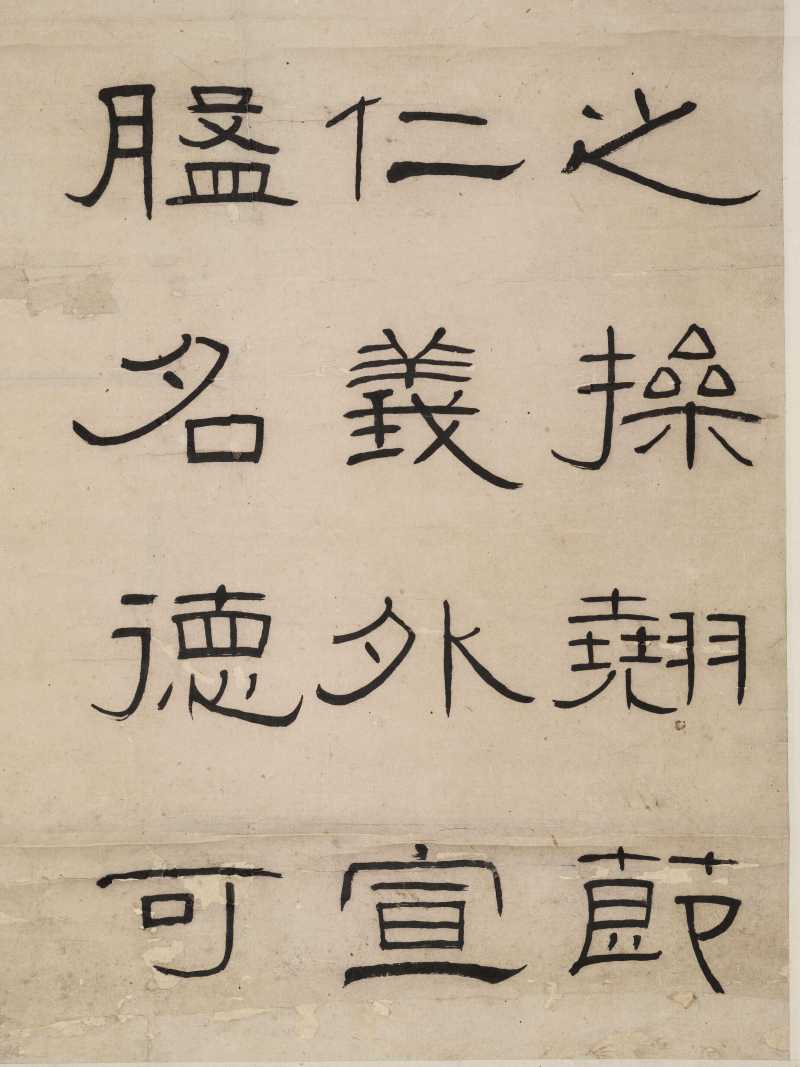 之操翹節
仁義外宣
名德可